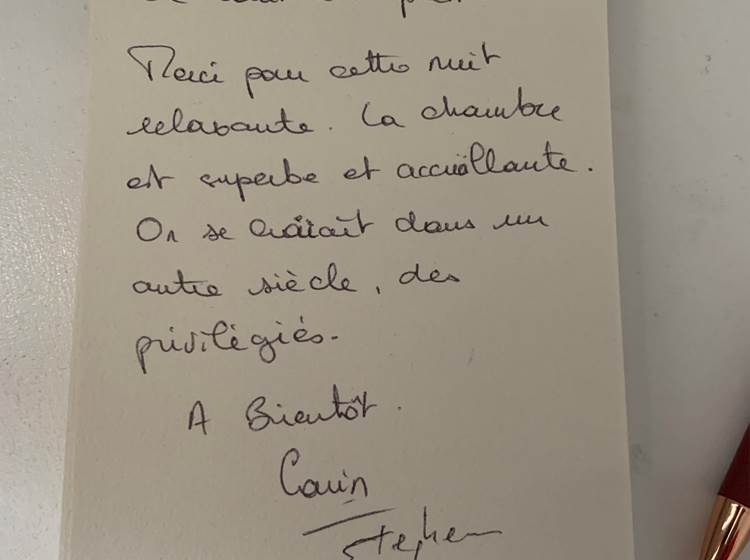 Merci pour cette nuit
relaxante. La chambre
est superbe et accueillante.
On se croirait dans un
autre siècle, des
privilégiés.
A Bientôt.
Corin
Stephen